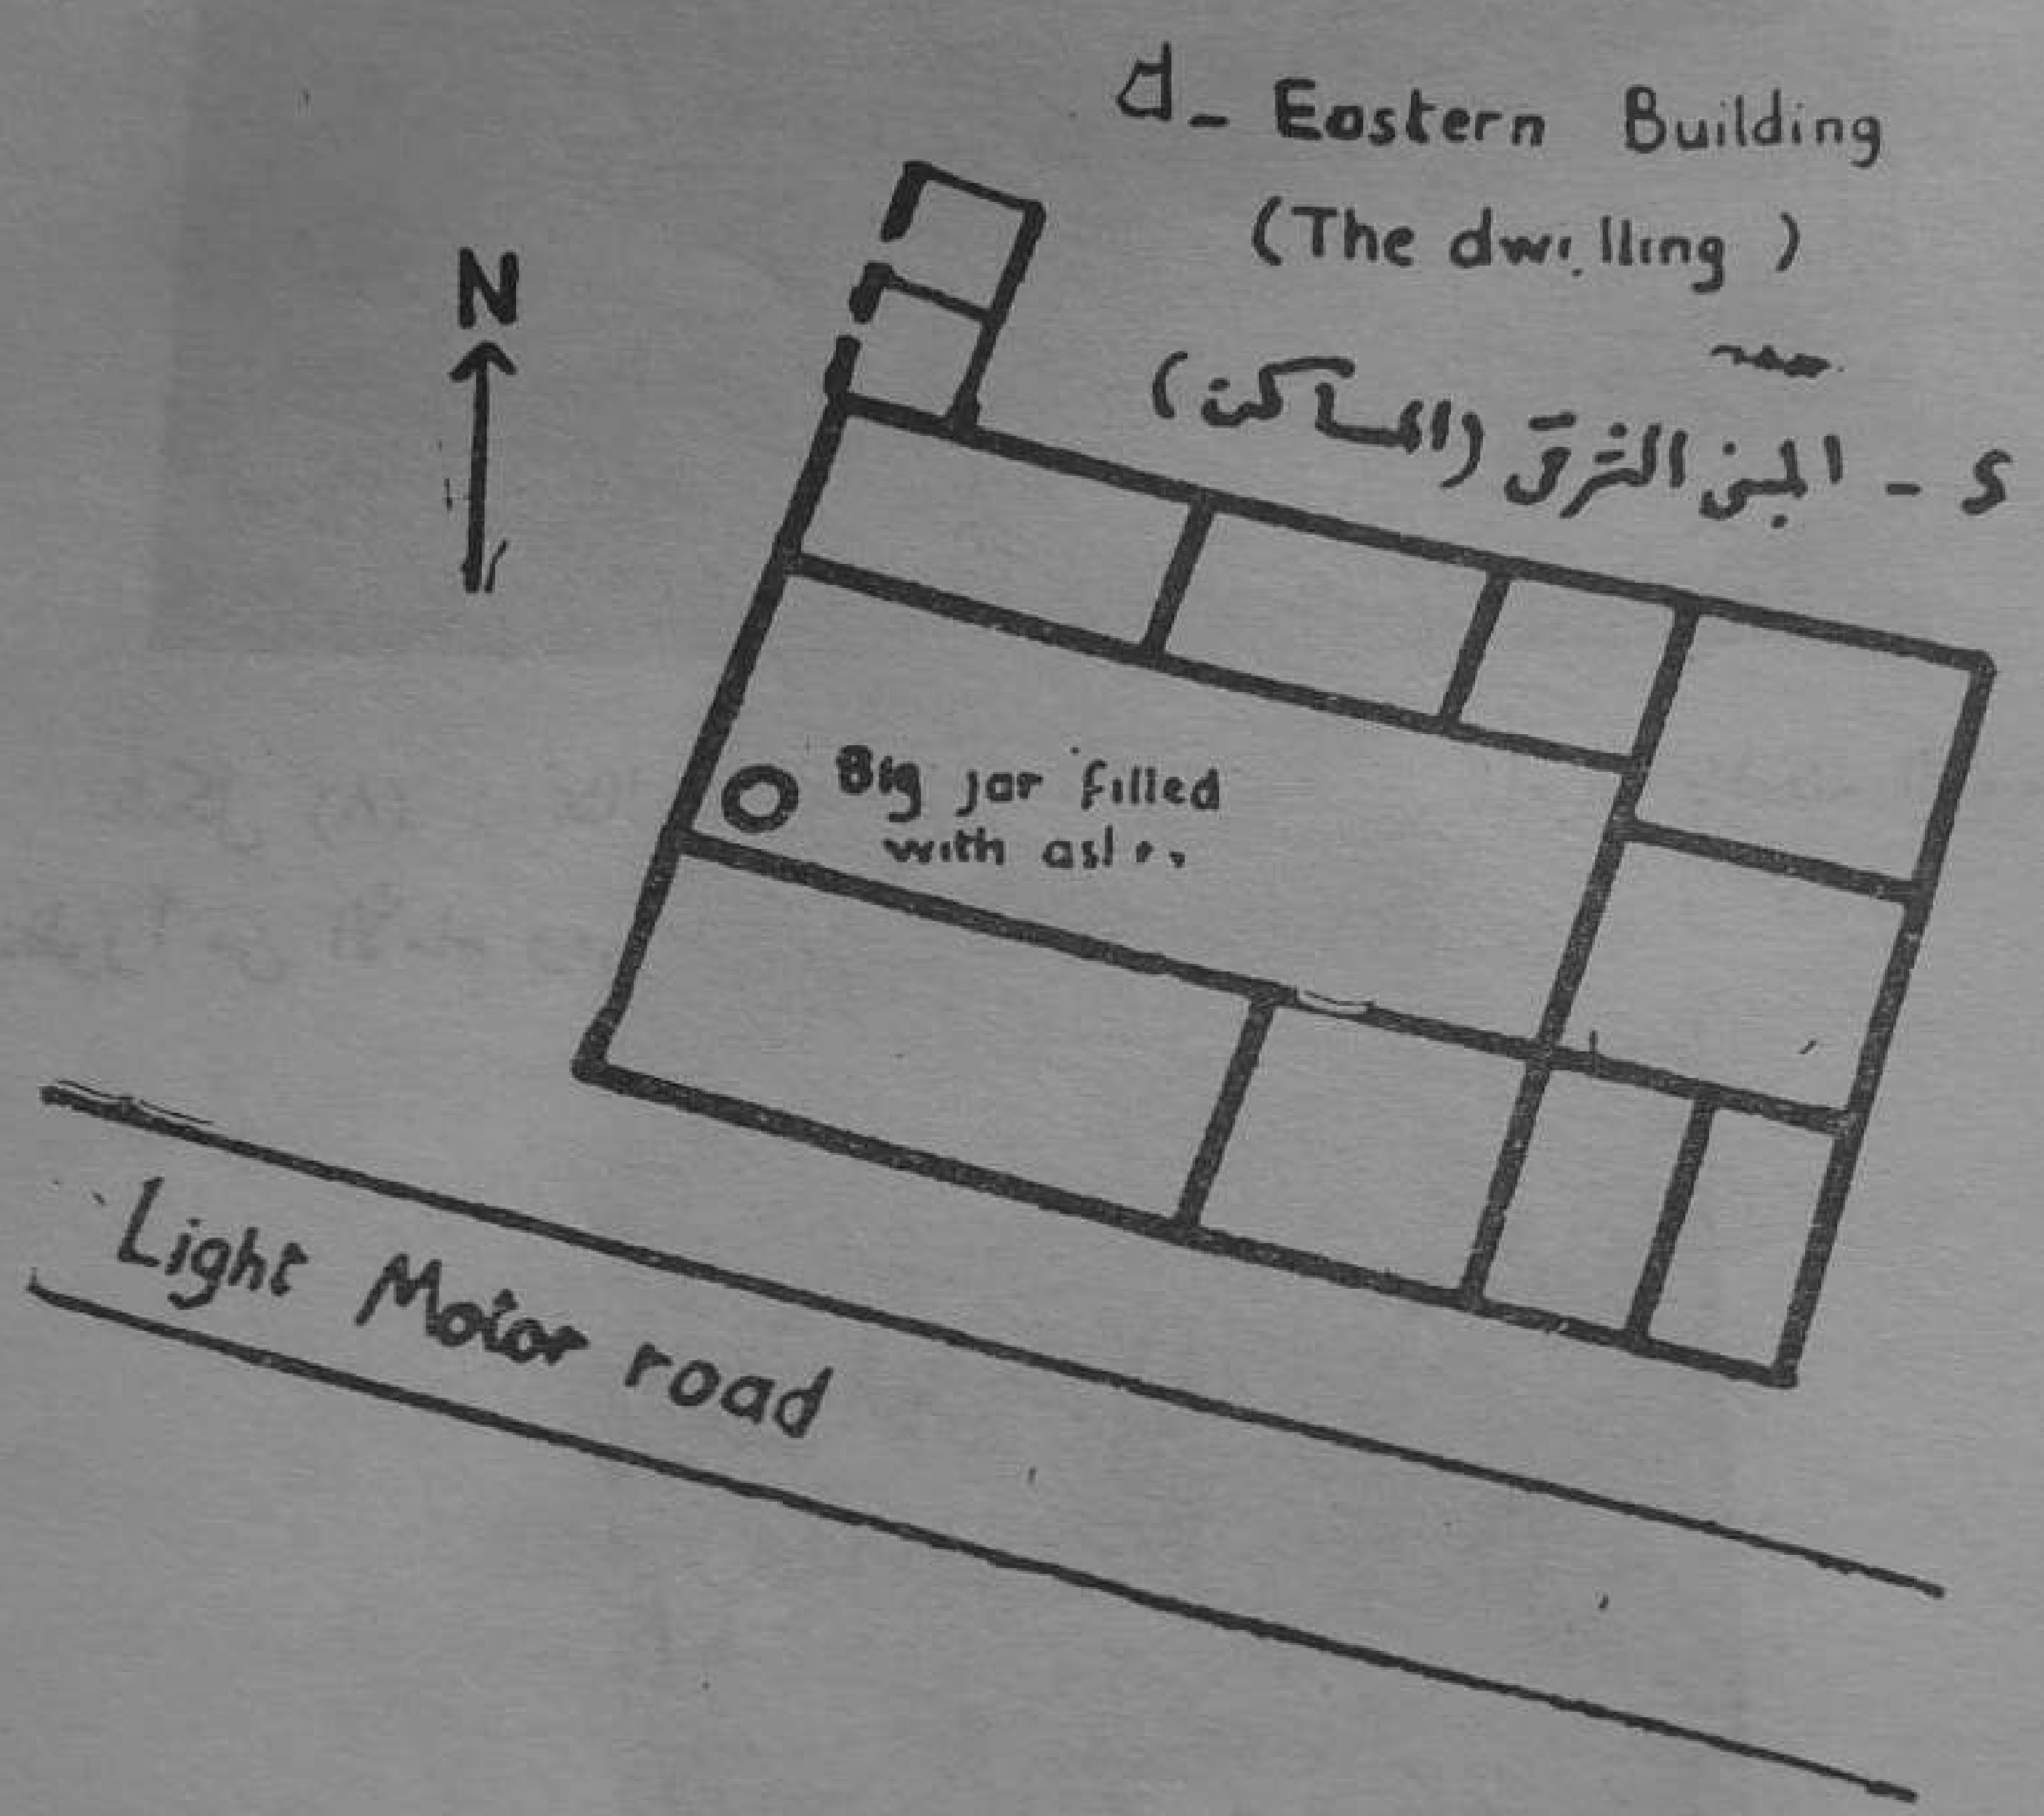 d- Eastern Building
(The dwilling)
د - المبنى الشرقى (المساكن)
N
Big jar filled
with
Light Motor road